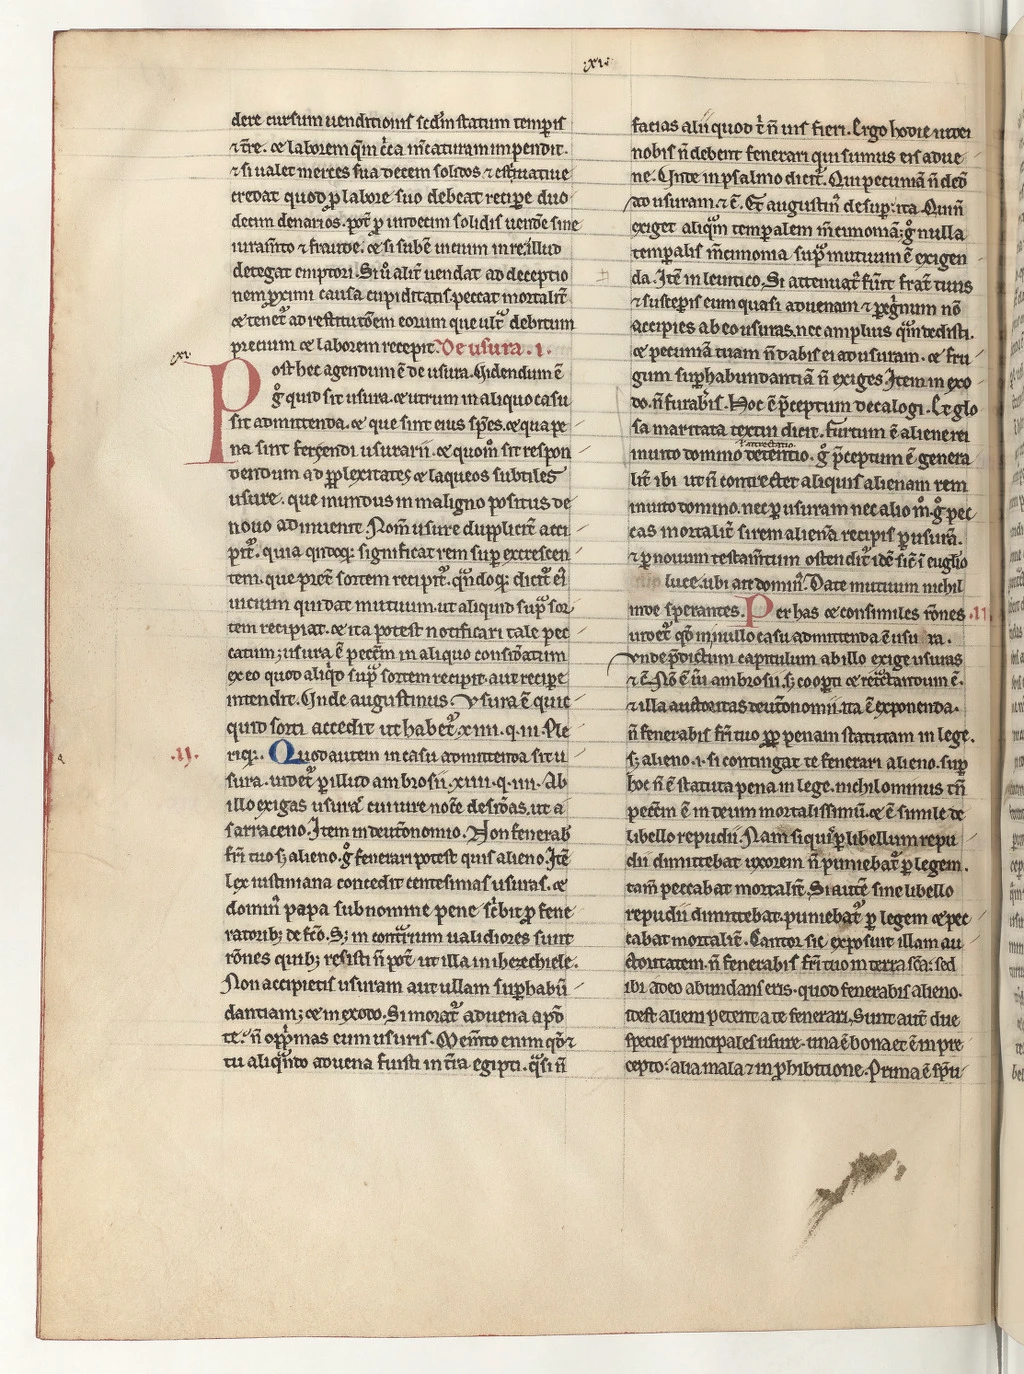 .xv.
dere cursum uenditionis sed in statum temp̄is
⁊ t̄re. ⁊ laborem q̄m c̄ca m̄caturam impendit.
⁊ si ualet merces sua decem solidos ⁊ estimatiue
credat quod ꝑ labore suo debeat recipe duo
decim denarios. pot̄ ꝑ undecim solidis uend̄e sine
iuram̄to ⁊ fraude. ⁊ si sub̄e uicium in re, illud
detegat emptori. Si u̾ alit̄ uendat ad deceptio
nem ꝓximi causa cupiditatis. peccat mortalit̄
⁊ tenet̾ ad restitutōem eorum que ult̾ debitum
precium ⁊ laborem recepit. De usura .i.
xv.
Post hec agendum ē de usura. Uidendum ē
g̾ quid sit usura. ⁊ utrum in aliquo casu
sit admittenda. ⁊ que sint eius sp̄es. ⁊ qua pe
na sint feriendi usurarii. ⁊ quom̊ sit respon
dendum ad ꝑplexitates ⁊ laqueos subtiles
usure. que mundus in maligno positus de
nouo adinuenit. Nom̄ usure dupplicit̄ acci
pit̾. quia qn̄doq; significat rem sup excrescen
tem. que preter sortem recipit̾. qn̄doq; dicit̾ ei̾
uicium qui dat mutuum. ut aliquid sup̾ sor
tem recipiat. ⁊ ita potest notificari tale pec
catum; usura ē pecc̄m in aliquo consid̾atum
ex eo quod aliq̾d sup̾ sortem recipit. aut recipe
intendit. Unde augustinus. Usura ē quic
quid sorti accedit ut habet̾ .xiiii. q. iii. Ple
.ii. riq;. Quod autem in casu admittenda sit u
sura. uidet̾ ꝑ illud ambrosii. xiiii. q. iiii. Ab
illo exigas usurā cui iure noc̄e desid̾as. ut a
sarraceno. Item in deut̾onomio. Non fenerab̾
fr̄i tuo s; alieno. g̾ fenerari potest quis alieno. Itē
lex iustiniana concedit centesimas usuras. ⁊
domin̾ papa sub nomine pene sc̾bit ꝓ fene
ratorib; de fc̄o. S; in cont̾rium ualidiores sunt
rōnes quib; resisti n̄ pot̄ ut illa in ihezechiele.
Non accipietis usuram aut ullam suphabū
dantiam; ⁊ in exodo. Si morat̾ aduena apd̾
te. n̄ opp̾mas eum usuris. Mem̄to enim qd̾ ⁊
tu aliqn̾do aduena fuisti in t̄ra egipti. q̾si n̄
facias alii quod t̾ n̄ uis fieri. Ergo hodie iudei
nobis n̄ debent fenerari qui sumus eis adue
ne. Unde in psalmo dicit̾. Qui pecuniā n̄ ded̾
ad usuram. ⁊ c̄. Et augustin̾ desup. ita. Qui n̄
exiget aliq̾m temp̄alem m̄cimoniā; g̾ nulla
temp̄alis m̄cimonia sup̾ mutuum ē exigen
da. Itē in leuitico. Si attenuat̾ fu̾it frat̾ tuus
⁊ suscepis eum quasi aduenam ⁊ pegͥnum nō
accipies ab eo usuras. nec amplius q̾m dedisti.
⁊ pecuniā tuam n̄ dabis ei ad usuram. ⁊ fru
gum suphabundantiā n̄ exiges. Item in exo
do. n̄ furab̾is. Hoc ē p̄ceptum decalogi. Et glo
sa maritata textui dicit. furtum ē aliene rei
.i. contrectatio.
inuito domino detentio. g̾ p̄ceptum ē genera
lit̄ ibi ut n̄ contrectet aliquis alienam rem
inuito domino. nec ꝑ usuram nec alio m̊. g̾ pec
cas mortalit̄ si rem alienā recipis ꝑ usurā.
⁊ ꝑ nouum testam̄tum ostendit̾ idē sic̄ ī euglio
luce. ubi ait domin̾. Date mutuum nichil
inde sperantes. Per has ⁊ consimiles rōnes .ii.
uidet̾ qd̾ in nullo casu admittenda ē usu ra.
Unde p̄dictum capitulum ab illo exige usuras
⁊ c̄. Nō ē in̾ ambrosii, s; coopti ⁊ rect̾tandum ē.
⁊ illa auctoritas deut̾onomii. ita ē exponenda.
n̄ fenerabis fr̄i tuo ꝓꝑ penam statutam in lege.
s; alieno. i. si contingat te fenerari alieno. sup
hoc n̄ ē statuta pena in lege. nichilominus tn̄
pecc̄m ē in deum mortalissimū. ⁊ ē simile de
libello repudii. Nam si quis ꝑ libellum repu
dii dimittebat uxorem n̄ puniebat̾ ꝑ legem.
tam̄ peccabat mortalit̄. Si autē sine libello
repudii dimittebat. puniebat̾ ꝑ legem ⁊ pec
cabat mortalit̄. Cantor sic exposuit illam au
ctoritatem. n̄ fenerabis fr̄i tuo in terra sc̄a. sed
ibi adeo abundans eris. quod fenerabis alieno.
idest alieni petent a te fenerari. Sunt aut̄ due
species principales usure. una ē bona et ē in pre
cepto; alia mala ⁊ in ꝓhibitione. Prima ē sp̄u